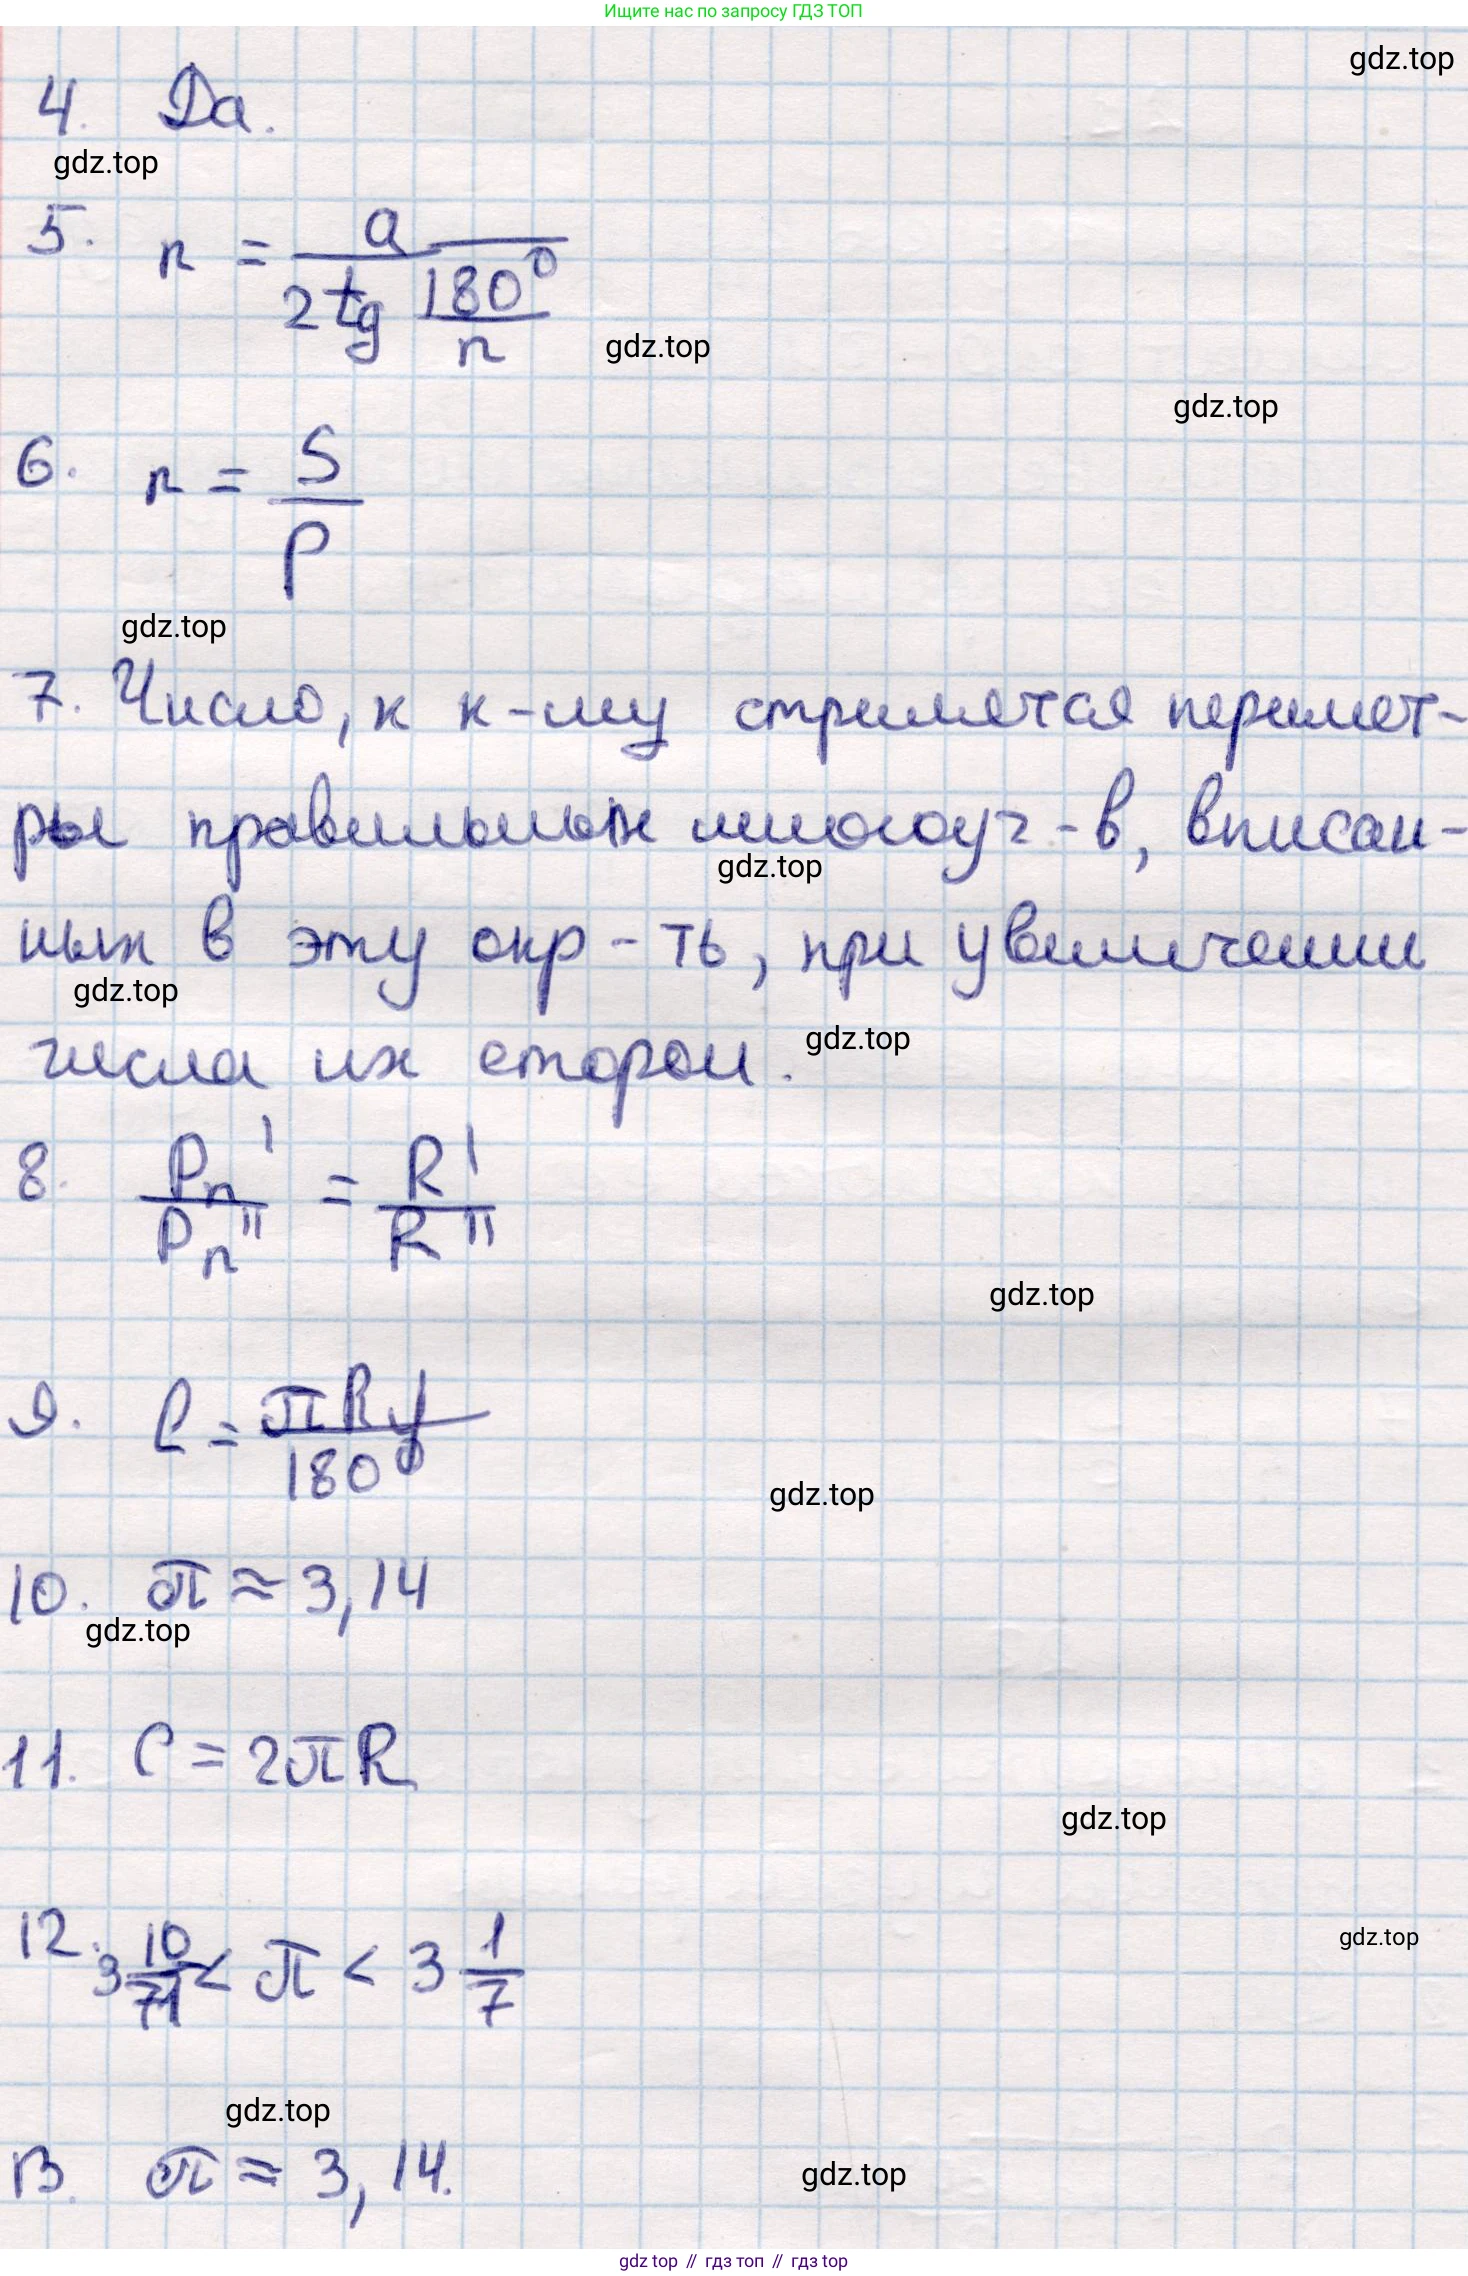 Ищите нас по запросу ГДЗ ТОП
gdz.top
4. Да.
gdz.top
5. r = a / (2 tg 180⁰/n)
gdz.top
gdz.top
6. r = S/P
gdz.top
7. Число, к к-му стримятся перимет-
ры правильных многоуг-в, вписан-
gdz.top
ных в эту окр-ть, при увеличении
gdz.top
числа их сторон.
gdz.top
8. Pn'/Pn" = R'/R"
gdz.top
9. l = πRφ/180⁰
gdz.top
10. π ≈ 3,14
gdz.top
11. C = 2πR
gdz.top
12. 3 10/71 < π < 3 1/7
gdz.top
gdz.top
13. π ≈ 3,14.
gdz.top
gdz top // гдз топ // gdz top